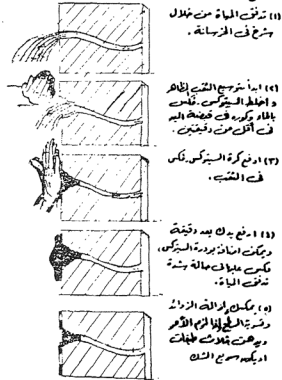 (١) تدفق المياة من خلال
شرخ فى الخرسانة.
(٢) ابدأ بتوسيع الثقب الظاهر
واخلط السيتوكس. فكس
بالماء وكوره فى قبضة اليد
فى أقل من دقيقتين.
(٣) ادفع كرة السيتوكس فكس
فى الثقب.
(٤) ارفع يدك بعد دقيقة
ويمكن اضافة بودرة السيتوكس.
فكس عليها فى حالة شدة
تدفق المياة.
(٥) يمكنك إزالة الزوائد
وتسوية السطح إذا لزم الأمر
ويدهن ثلاث طبقات
اديكور سريع الشك